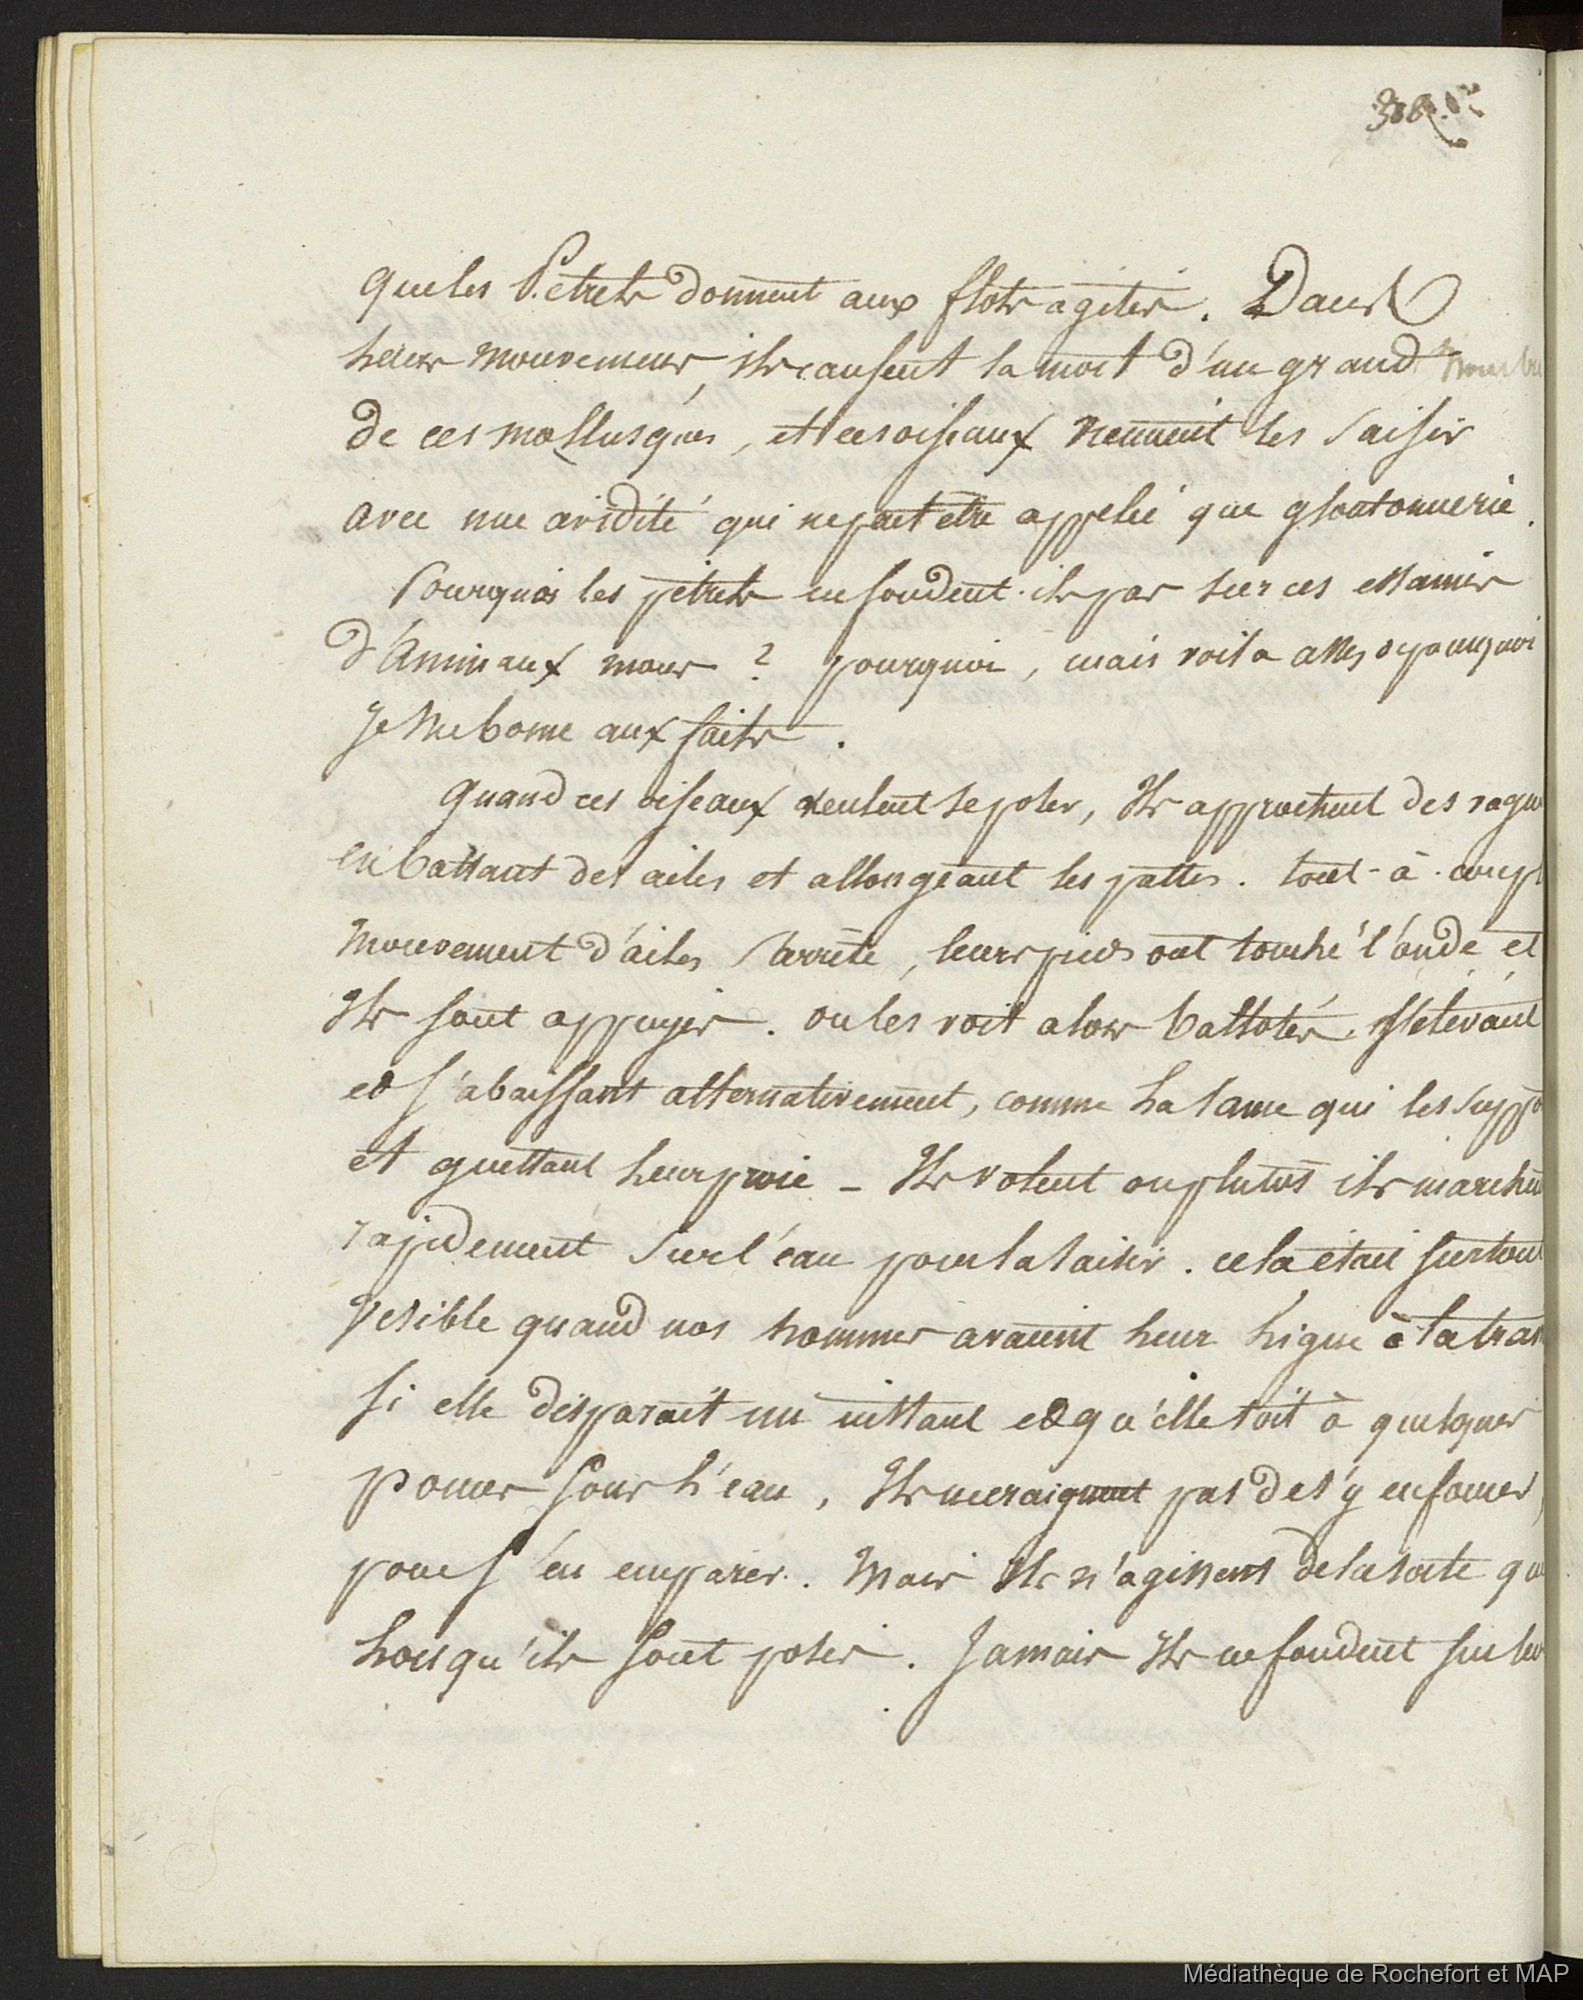 308.
que les Pétrels donnent aux flots agités. Dans
leurs mouvemens, ils causent la mort d'un grand nombre
de ces mollusques, et ces oiseaux viennent les saisir
avec une avidité qui ne peut être appelée que gloutonnerie.
Pourquoi les pétrels ne fondent-ils pas sur ces essaims
d'Animaux mous ? pourquoi, mais voilà assez de pourquoi
Je me borne aux faits.
Quand ces oiseaux veulent se poser, Ils approchent des vagues
en battant des ailes et allongeant les pattes. tout-à-coup l
mouvement d'ailes s'arrête, leurs pieds ont touché l'onde et
Ils sont appuyés. on les voit alors ballotés, s'élevant
et s'abaissant alternativement, comme la lame qui les suppo
et guettant leur proie - Ils volent ou plutôs ils marchen
rapidement sur l'eau pour la saisir. cela était surtout
visible quand nos hommes avaient leur ligne à la traî
si elle disparait un instant et qu'elle soit à quelques
pouces sous l'eau, Ils ne craignent pas de s'y enfoncer,
pour s'en emparer. Mais Ils n'agissent de la sorte qu
lorsqu'ils sont posés. Jamais Ils ne fondent sur leu
Médiathèque de Rochefort et MAP